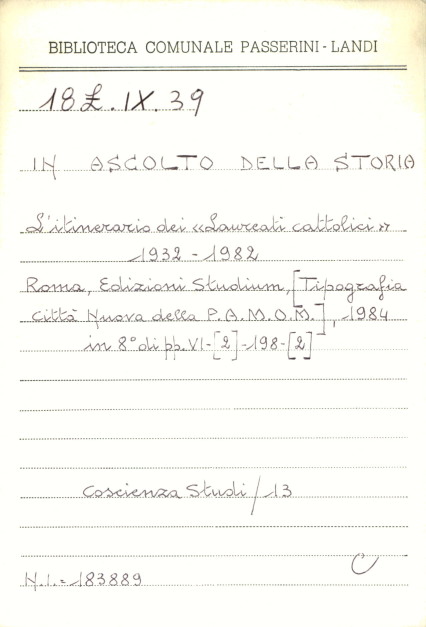 BIBLIOTECA COMUNALE PASSERINI-LANDI
18£.IX.39
IN ASCOLTO DELLA STORIA
L'itinerario dei «Laureati cattolici»
1932-1982
Roma, Edizioni Studium, [Tipografia
Città Nuova della P.A.M.O.M.], 1984
in 8° di pp. VI-[2]-198-[2]
Coscienza Studi/13
N.I.=183889